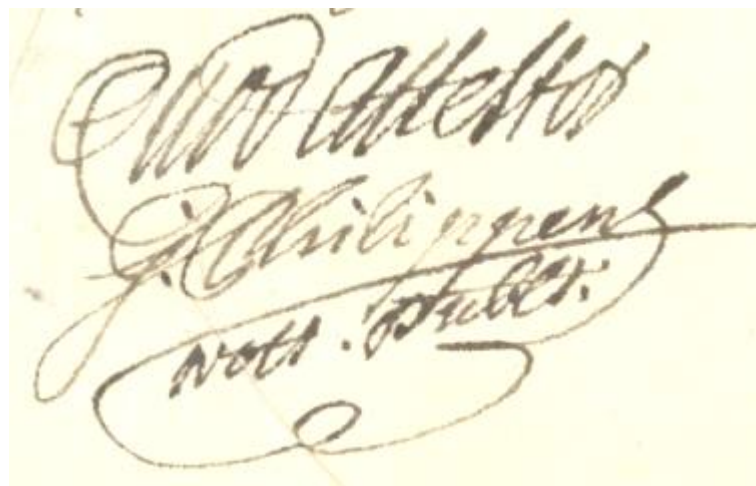 Quod Attestor
G. Philippens
nott. publ.